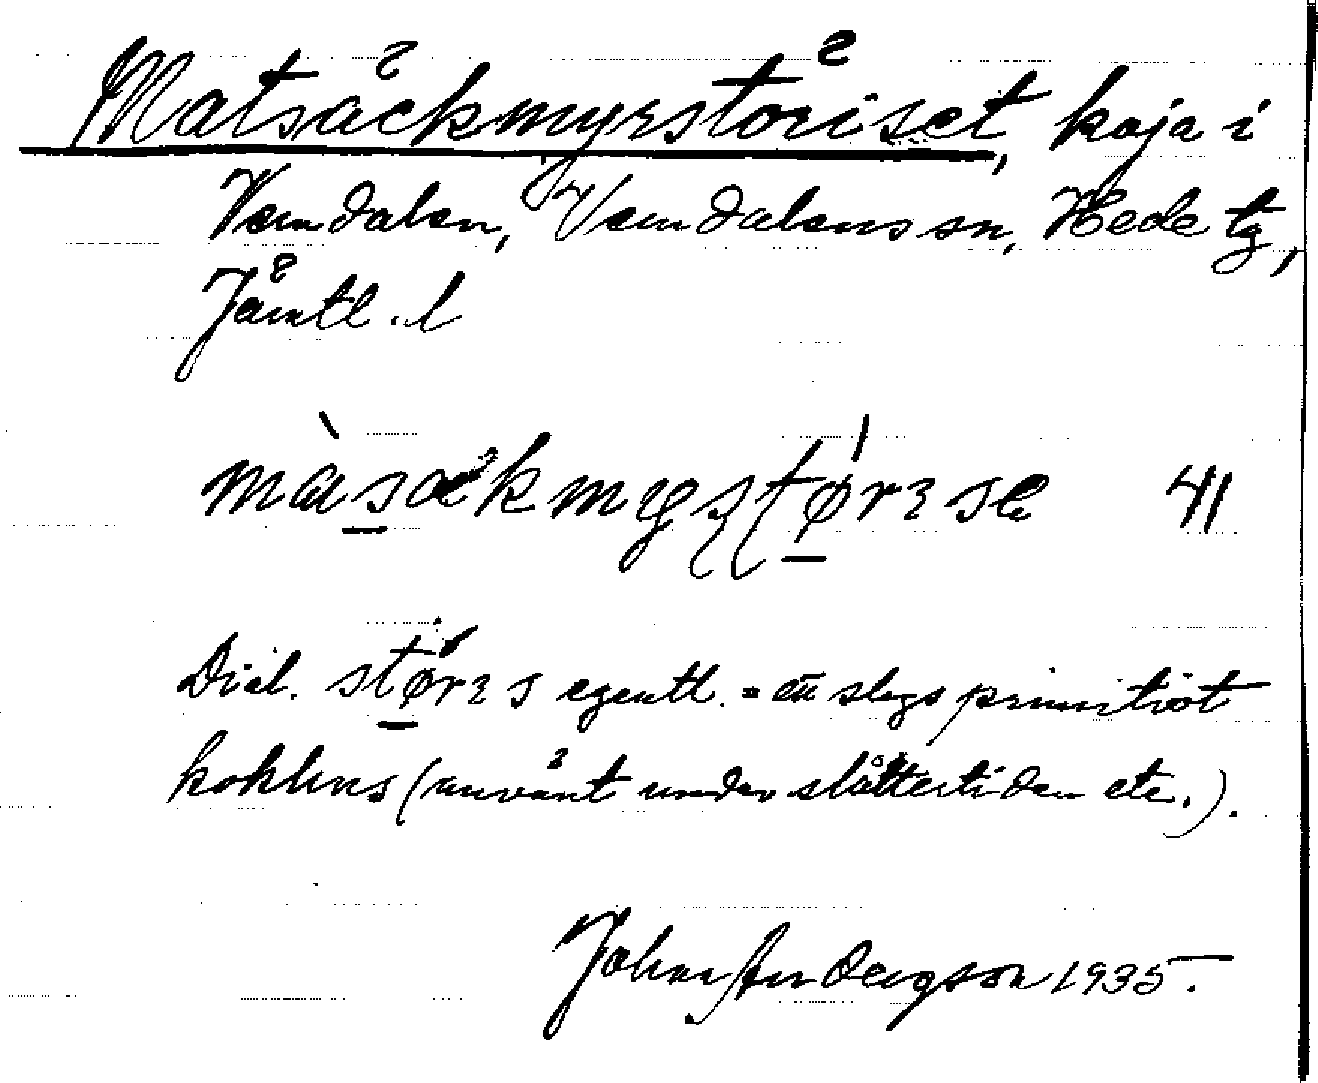 Matsäckmyrstöriset, koja i
Vemdalen, Vemdalens sn, Hede tg,
Jämtl. l
41
Dial. størɩs egentl. = ett slags primitivt
kokhus (använt under slåttertiden etc.).
Johan Andersson 1935.